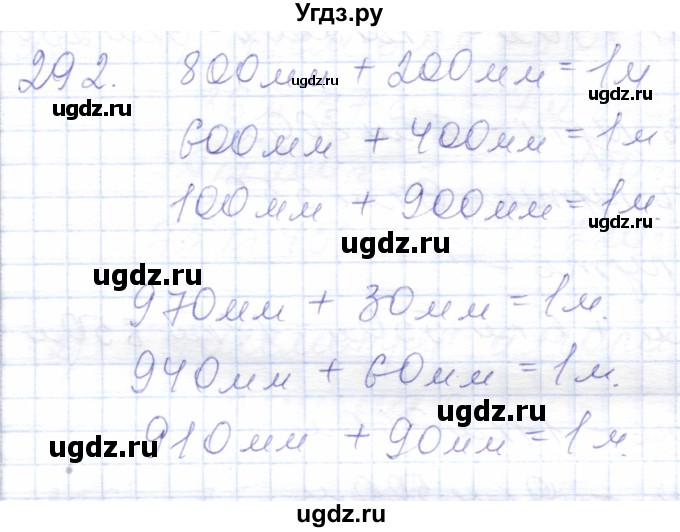 Угдз.ру
292. 800мм + 200мм = 1м
ugdz.ru
ugdz.ru
ugdz.ru
600мм + 400мм = 1м
100мм + 900мм = 1м.
ugdz.ru
ugdz.ru
ugdz.ru
970мм + 30мм = 1м.
940мм + 60мм = 1м.
ugdz.ru
910мм + 90мм = 1м.
ugdz.ru
ugdz.ru